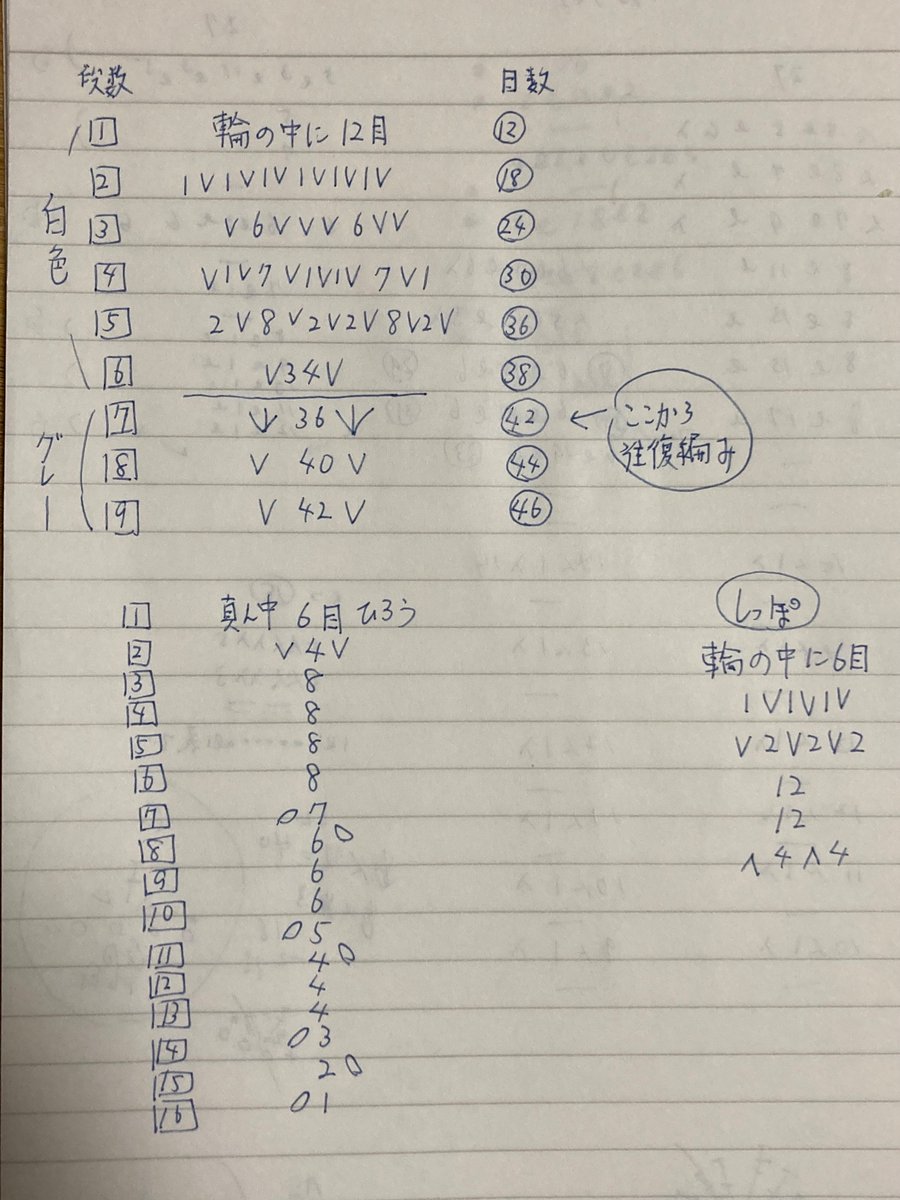 段数 目数
1 輪の中に12目 12
2 1V1V1V1V1V1V 18
3 V6VVV6VV 24
4 V1V7V1V1V7V1 30
5 2V8V2V2V8V2V 36
6 V34V 38
白色
7 V 36 V 42 ← ここから往復編み
8 V 40 V 44
9 V 42 V 46
グレー
1 真ん中6目ひろう
2 V4V
3 8
4 8
5 8
6 8
7 0 7
8 6 0
9 6
10 6
11 0 5
12 4 0
13 4
14 4
15 0 3
16 2 0
0 1
しっぽ
輪の中に6目
1V1V1V
V2V2V2
12
12
∧4∧4